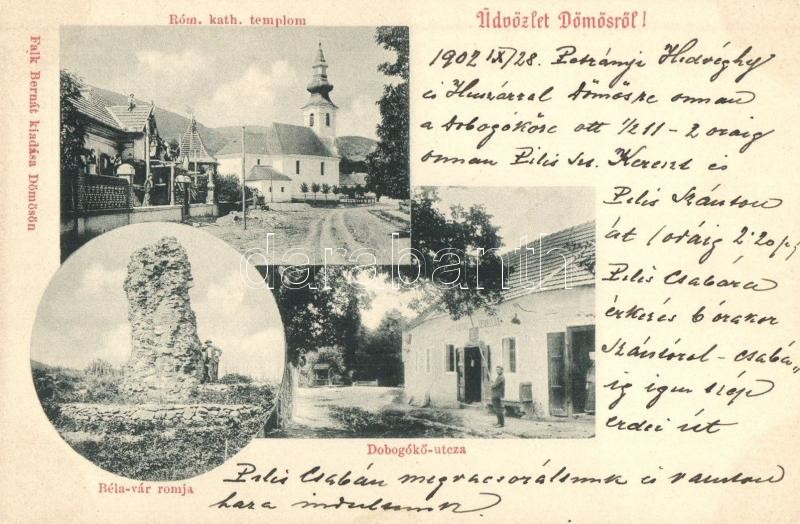 Róm. kath. templom
Üdvözlet Dömösről!
Falk Bernát kiadása Dömösön
1902 IX/28. Petrányi Hedvéghy
és Huszárral Dömösre onnan
a Dobogókőre ott ½11 - 2 óráig
onnan Pilis Kereszt és
Pilis Szánton
át
Pilis Csabára
érkezés 6 órakor
Szántóról - Csabá"
ig igen szép
erdei út
Pilis Csabán megvacsoráltunk és vonaton
haza indultunk
Dobogókő-utcza
Béla-vár romja
darabanth.com